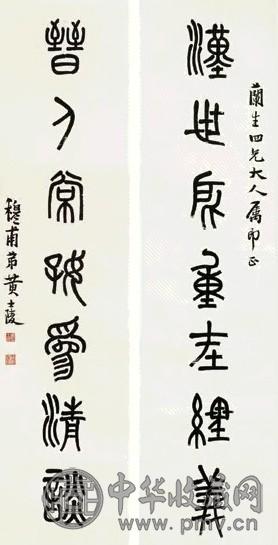 蘭生四兄大人屬即正
漢世所重在經義
晉人常好爲清談
穆甫弟黃士陵
中华收藏网